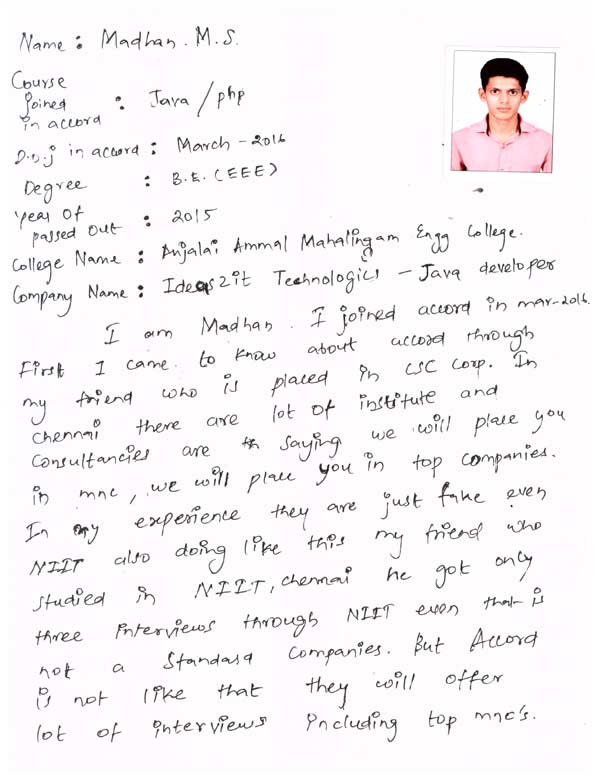 Name : Madhan. M.S.
Course
joined
in accord : Java / php
D.O.J in accord : March - 2016
Degree : B.E. (EEE)
Year Of
passed out : 2015
College Name : Anjalai Ammal Mahalingam Engg College.
Company Name : Ideas2it Technologies - Java developer
I am Madhan. I joined accord in mar-2016.
First I came to know about accord through
my friend who is placed in CSC Corp. In
chennai there are lot of institute and
Consultancies are saying we will place you
in mnc, we will place you in top companies.
In my experience they are just fake even
NIIT also doing like this my friend who
studied in NIIT, chennai he got only
three interviews through NIIT even that is
not a Standard Companies. But Accord
is not like that they will offer
lot of interviews including top mnc's.